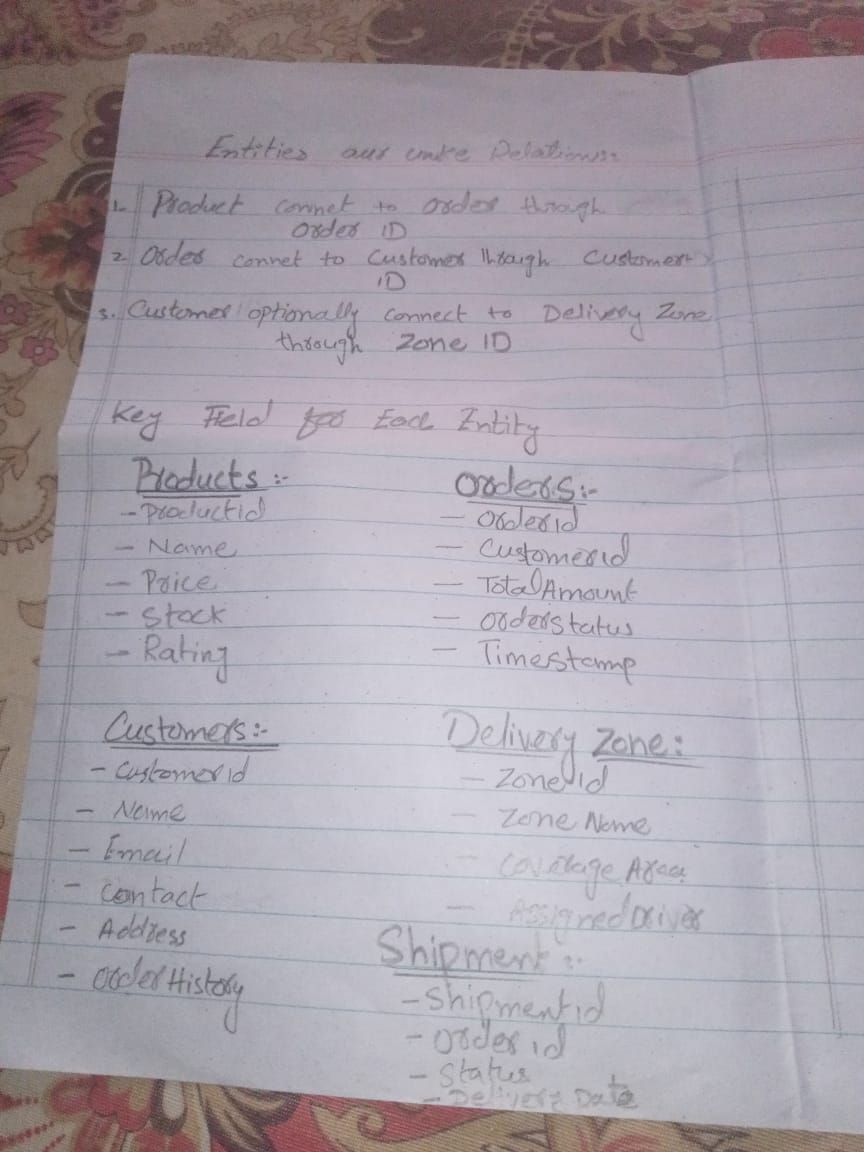 Entities aur unke Relations:-
1. Product connet to order through
Order ID
2. Order connet to Customer through Customer
ID
3. Customer optionally connect to Delivery Zone
through Zone ID
Key Field for Each Entity
Products :-
- Productid
- Name
- Price
- Stock
- Rating
Orders:-
- Orderid
- Customerid
- TotalAmount
- OrderStatus
- Timestamp
Customers:-
- Customerid
- Name
- Email
- Contact
- Address
- OrderHistory
Delivery Zone:
- Zoneid
- Zone Name
- Coverage Area
- AssignedDriver
Shipment :-
- Shipmentid
- Order id
- Status
- Delivery Date